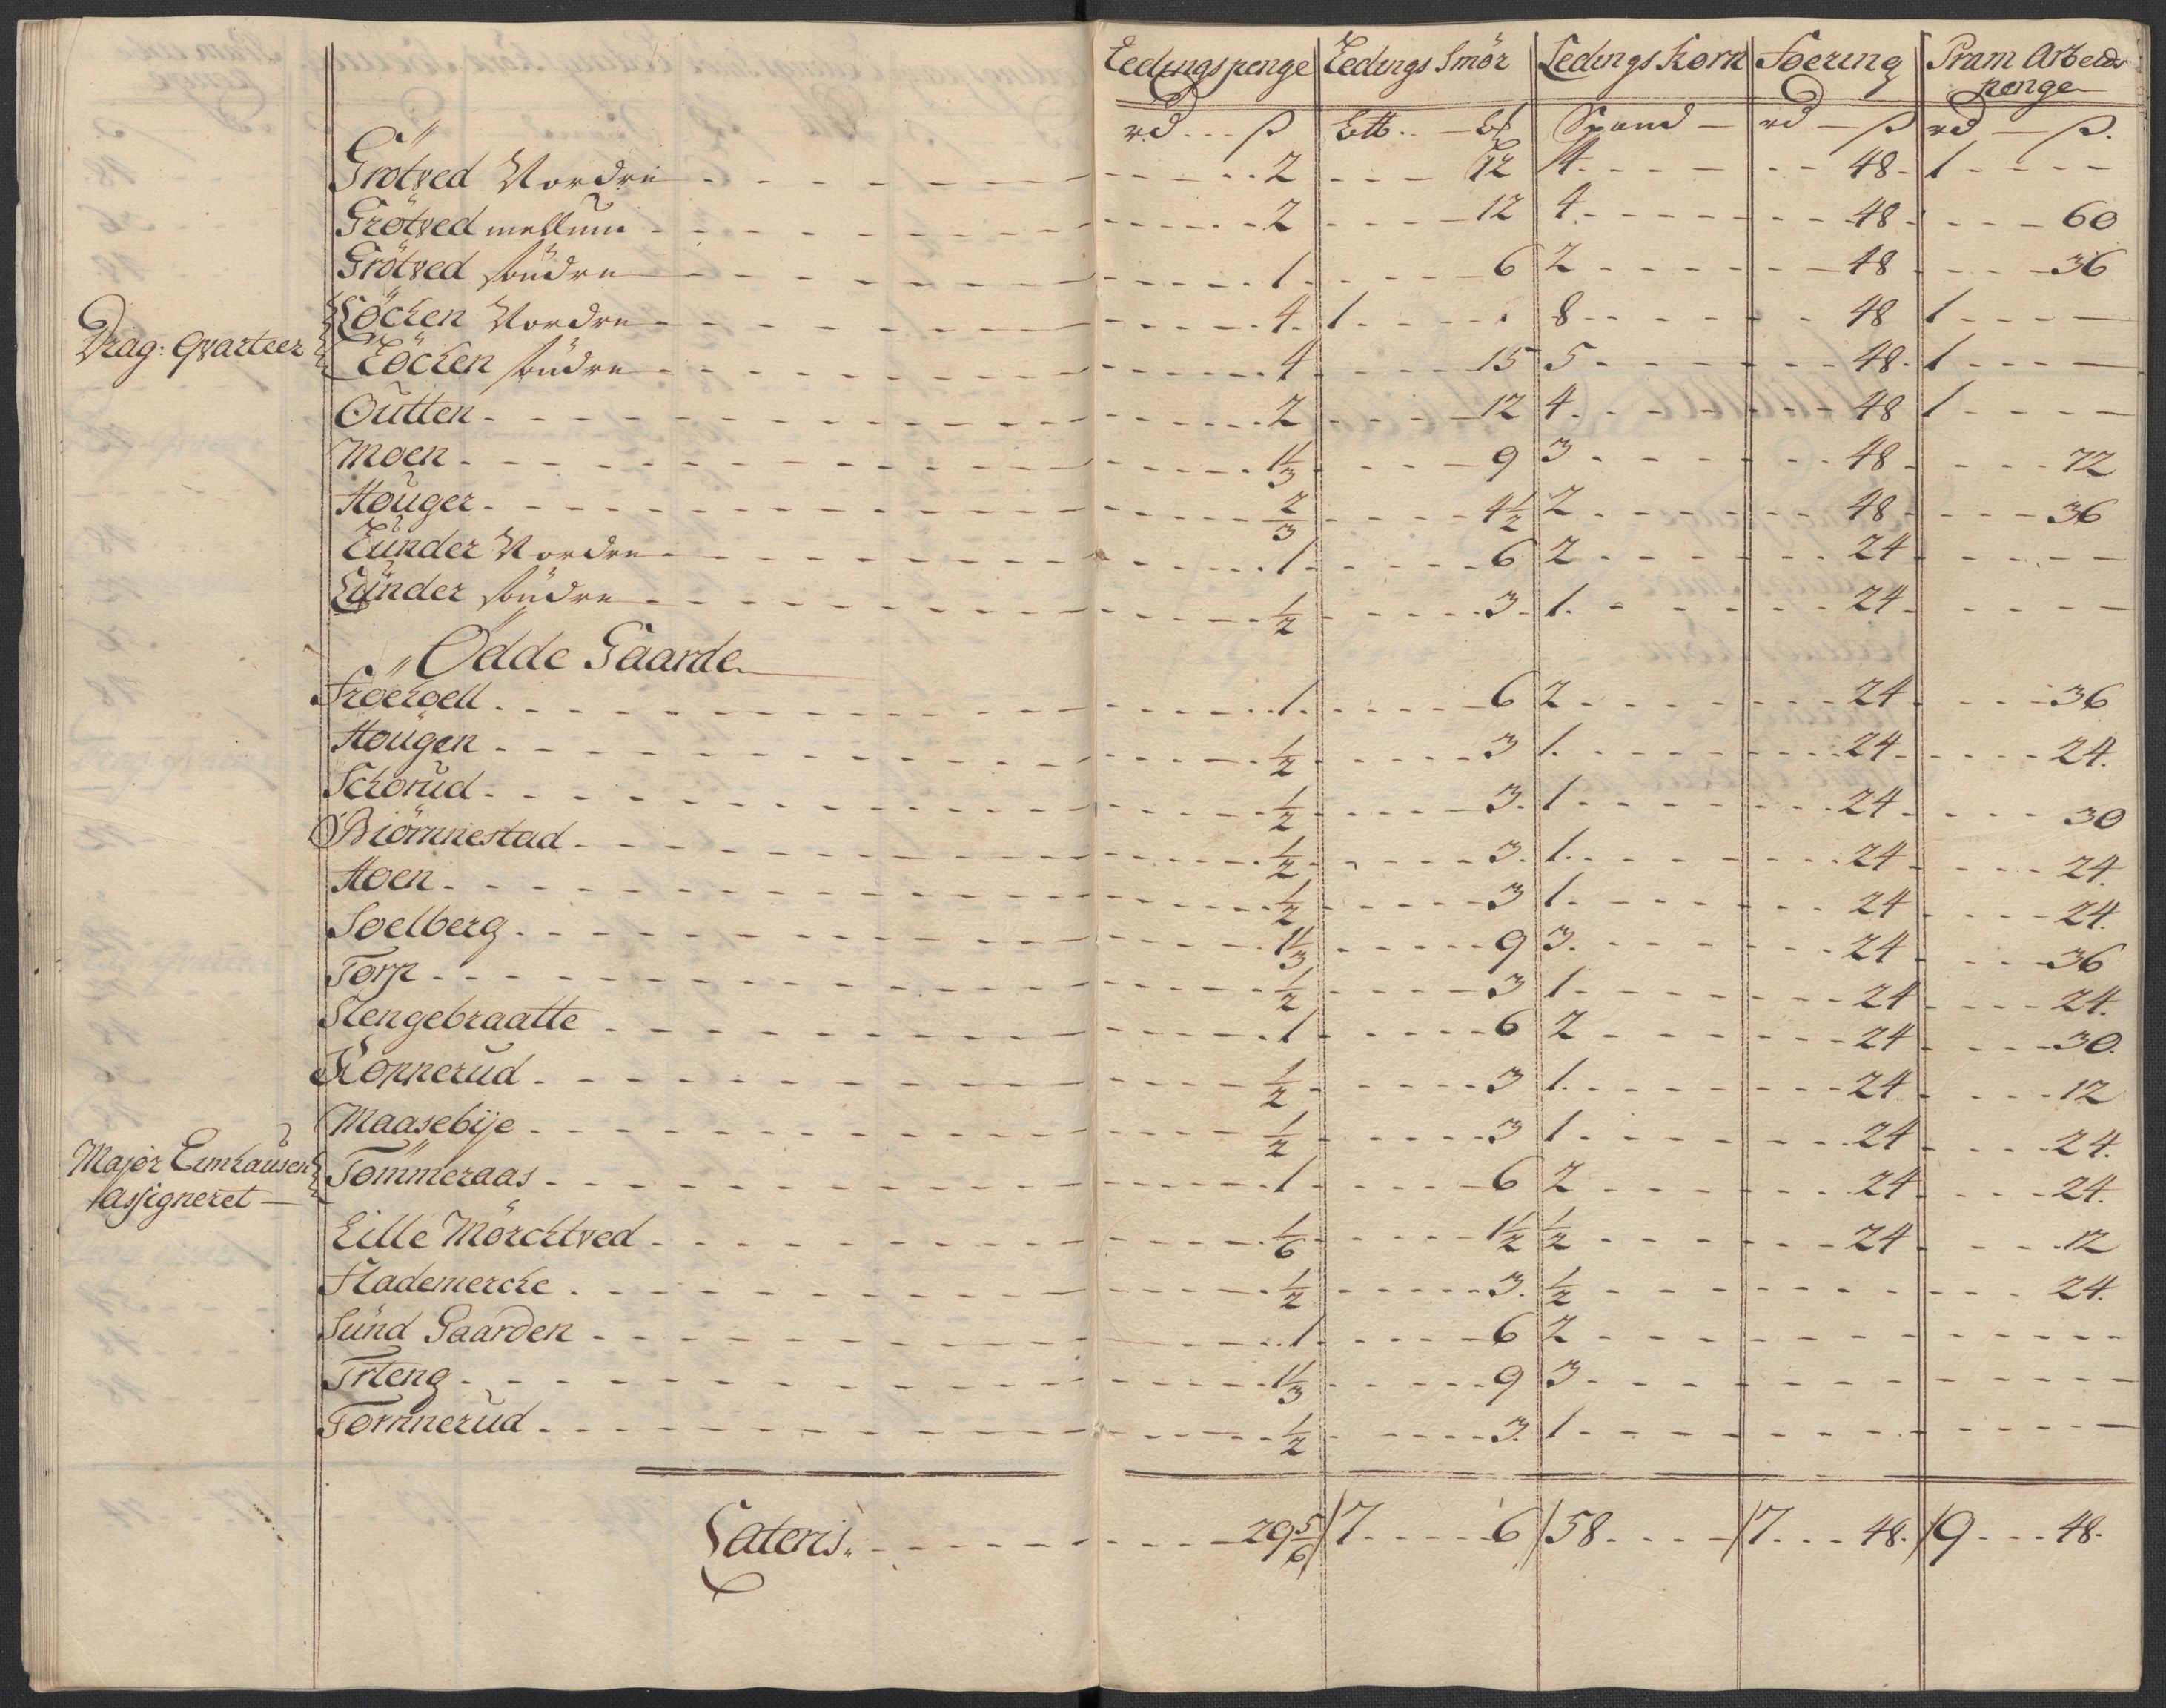 Ledingspenge Ledings Smör Ledings Korn Foering Pram Arbeids penge
rd --- ß Btb. - Spand - rd - ß rd - ß.
Grötved Nordre - - - 2 - - - 12 4 - - - 48 - 1 - - -
Grötved mellum - - - 2 - - - 12 4 - - - 48 - - - 60
Grötved söndre - - - 1 - - - 6 2 - - - 48 - - - 36
Löchen Nordre - - - 4. 1 - - - 8 - - - 48 1 - - -
Drag: Qvarteer Löchen söndre - - - 4 - - - 15 5 - - - 48. 1 - - -
Outten - - - 2 - - - 12 4 - - - 48 1 - - -
Moen - - - 1 1/3 - - - 9 3 - - - 48 - - - 72
Houger - - - 2/3 - - - 4 1/2 2 - - - 48 - - - 36
Lunder Nordre - - - 1 - - - 6 2 - - - 24 - - -
Lunder söndre - - - 1/2 - - - 3 1. - - - 24 - - -
Ödde Gaarde
Froekoell - - - 1 - - - 6 2 - - - 24 - - - 36
Hougen - - - 1/2 - - - 3 1. - - - 24 - - - 24.
Schorud - - - 1/2 - - - 3. 1 - - - 24 - - - 30
Biörnnestad - - - 1/2 - - - 3. 1. - - - 24 - - - 24.
Hoen - - - 1/2 - - - 3 1. - - - 24 - - - 24.
Soelberg - - - 1 1/3 - - - 9 3. - - - 24 - - - 36
Torp - - - 1/2 - - - 3 1 - - - 24 - - - 24.
Stengebraatte - - - 1 - - - 6 2 - - - 24 - - - 30.
Konnerud - - - 1/2 - - - 3 1. - - - 24 - - - 12
Maasebije - - - 1/2 - - - 3 1 - - - 24 - - - 24.
Major Emhausen Assigneret - Tömmeraas - - - 1 - - - 6 2 - - - 24 - - - 24.
Lille Mörchtved - - - 1/6 - - - 1 1/2 1/2 - - - 24 - - - 12
Flademerche - - - 1/2 - - - 3. 1/2 - - - 24.
Sund Gaarden - - - 1 - - - 6 2 - - -
Trteng - - - 1 1/3 - - - 9 3 - - -
Tornnerud - - - 1/2 - - - 3. 1 - - -
Lateris. - - - 29 5/6 / 7 - - - 6 / 58 - - - / 7 - - - 48. / 9 - - - 48.